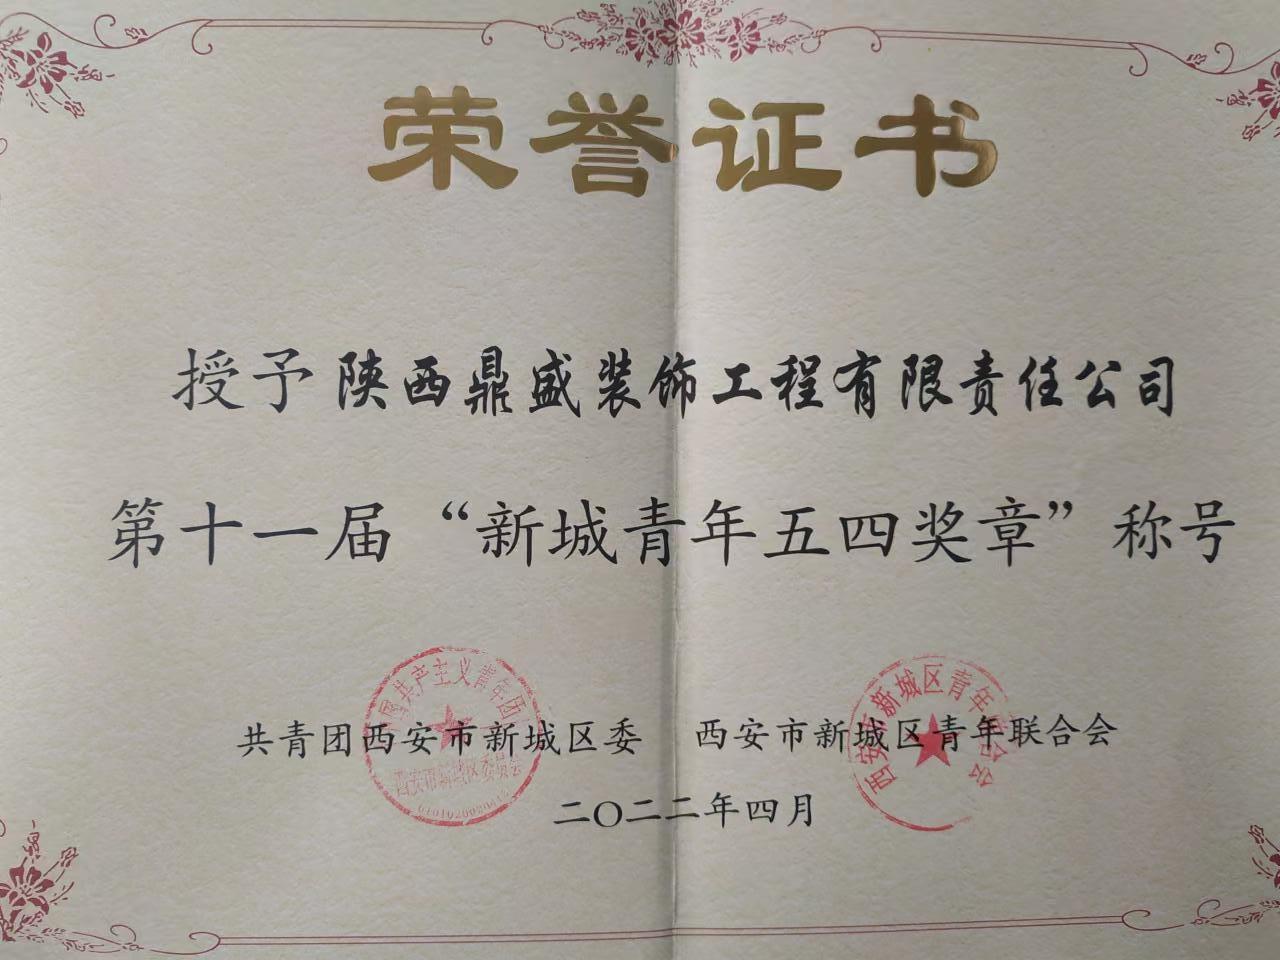 荣誉证书
授予陕西鼎盛装饰工程有限责任公司
第十一届“新城青年五四奖章”称号
共青团西安市新城区委 西安市新城区青年联合会
国共产主义青年团
西安市新城区委员会
西安市新城区青年联合会
二〇二二年四月